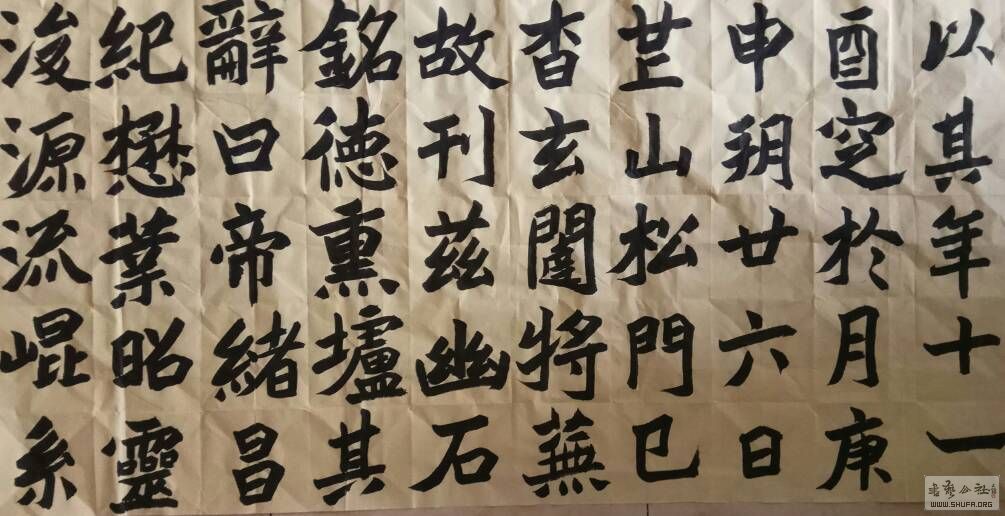 以其年十一
酉窆於月庚
申朔廿六日
芒山松門已
杳玄闥將蕪
故刊茲幽石
銘德熏壚其
辭曰帝緒昌
紀懋業昭靈
浚源流崐系
书艺公社
WWW.SHUFA.ORG